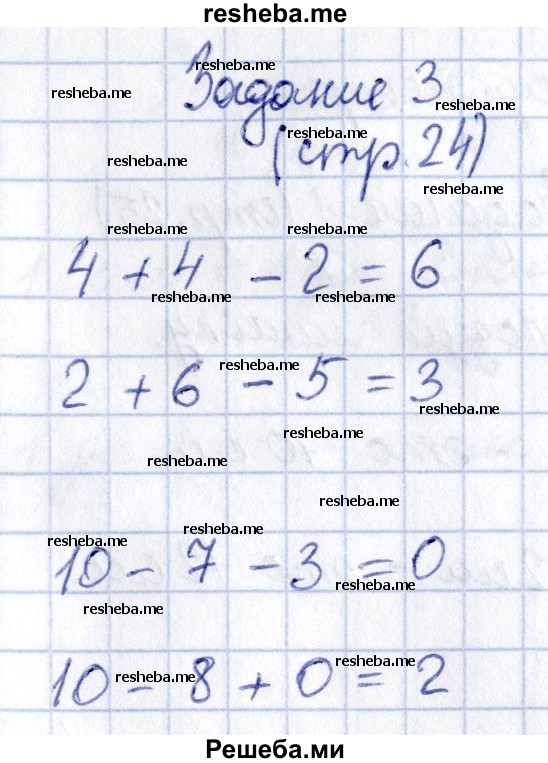 resheba.me
resheba.me
Задание 3
resheba.me resheba.me
resheba.me
resheba.me
(стр. 24)
resheba.me
resheba.me resheba.me
4 + 4 - 2 = 6
resheba.me resheba.me
resheba.me
2 + 6 - 5 = 3
resheba.me
resheba.me
resheba.me
resheba.me
resheba.me
resheba.me
10 - 7 - 3 = 0
resheba.me
resheba.me
resheba.me
10 - 8 + 0 = 2
resheba.me
Решеба.ми